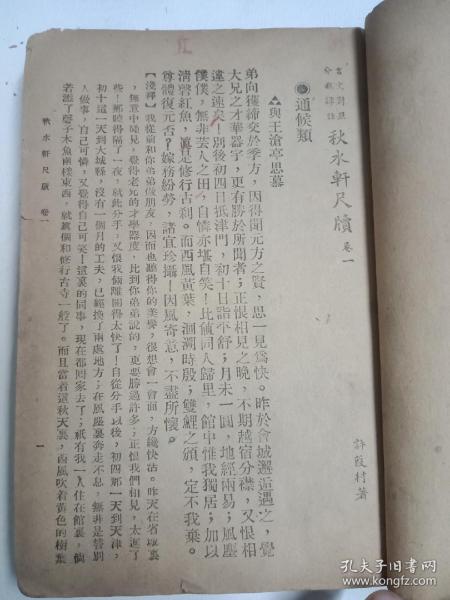 言文對照
分類詳註
秋水軒尺牘 卷一
許葭村著
通候類
與王滄亭思慕
弟向獲締交於季方，因得聞元方之賢，思一見爲快。昨於會城邂逅遇之，覺
大兄之才華器宇，更有勝於所聞者；正恨相見之晚，不期越宿分襟，又恨相
違之速矣！別後初四日抵津門，初十日詣平舒；月未一圓，地經兩易；風塵
僕僕，無非芸人之田，自憐亦堪自笑！比値同人歸里，館中惟我獨居；加以
淸磬紅魚，眞是修行古刹。而西風黃葉，洄溯時殷；雙鯉之頒，定不我棄。
尊體復元否？嫁務紛勞，諸宜珍攝！因風寄意，不盡所懷。
【淺釋】我從前和你弟弟做朋友，因而也聽得你的美譽，很想會一會面，方纔快活。昨天在省城裏
，無意中碰見，覺得老兄的才學器度，比到你弟弟說的，更要勝過許多；正恨我們相見，太遲了
些！那曉得隔了一夜，就此分手，又恨我倆離開得太快了！自從分手以後，初四那一天到天津，
初十這一天到大城縣，沒有一個月的工夫，已經換了兩處地方；在風塵裏奔走不息，無非是替別
人做事，自己可憐，又覺得自己可笑！這裏的同事，現在都回家去了；祇有我一人住在館裏，倘
若添了磬子木魚兩樣東西，就眞個和修行古寺一般了。而且當着這秋天裏，西風吹着黃色的樹葉
秋水軒尺牘 卷一
一
孔夫子旧书网